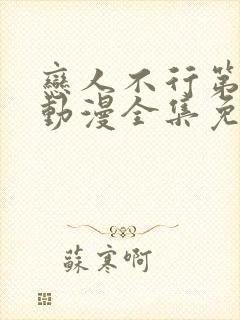 戀人不行第
動漫全集免
蘇寒啊